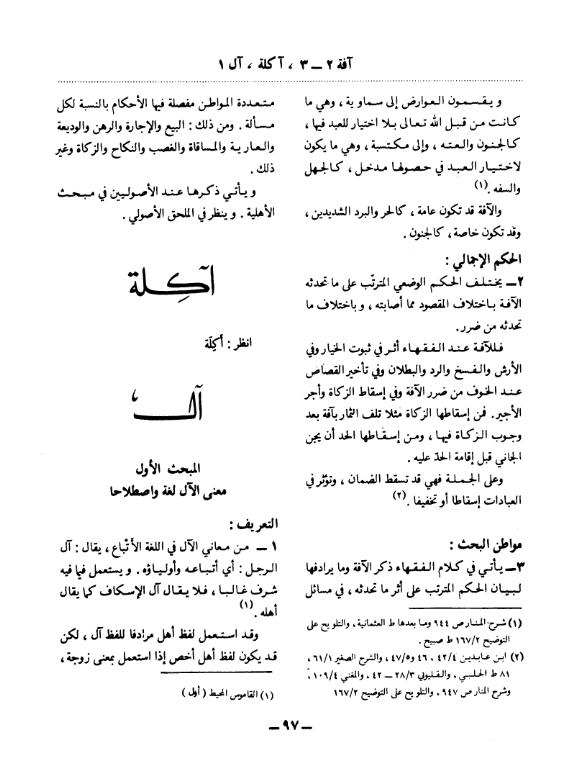 آفة ٢ ــ ٣ ، آكلة ، آل ١
ويقسمون العوارض إلى سماوية ، وهي ما
كانت من قبل الله تعالى بلا اختيار للعبد فيها ،
كالجنون والعته ، وإلى مكتسبة ، وهي ما يكون
لاختيار العبد في حصولها مدخل ، كالجهل
والسفه . (١)
والآفة قد تكون عامة ، كالحر والبرد الشديدين ،
وقد تكون خاصة ، كالجنون .
الحكم الإجمالي :
٢ــ يختلف الحكم الوضعي المترتّب على ما تحدثه
الآفة باختلاف المقصود مما أصابته ، وباختلاف ما
تحدثه من ضرر .
فللآفة عند الفقهاء أثر في ثبوت الخيار وفي
الأرش والفسخ والرد والبطلان وفي تأخير القصاص
عند الخوف من ضرر الآفة وفي إسقاط الزكاة وأجر
الأجير . فمن إسقاطها الزكاة مثلا تلف الثمار بآفة بعد
وجوب الزكاة فيها ، ومن إسقاطها الحد أن يجن
الجاني قبل إقامة الحدّ عليه .
وعلى الجملة فهي قد تسقط الضمان ، وتؤثر في
العبادات إسقاطا أو تخفيفا . (٢)
مواطن البحث :
٣ــ يأتي في كلام الفقهاء ذكر الآفة وما يرادفها
لبيان الحكم المترتب على أثر ما تحدثه ، في مسائل
(١) شرح المنار ص ٩٤٤ وما بعدها ط العثمانية ، والتلويح على
التوضيح ١٦٧/٢ ط صبيح .
(٢) ابن عابدين ٤٢/٤ ، ٤٦ و٤٧/٥ ، والشرح الصغير ٦١/١ ،
٨١ ط الحلبي ، والقليوبي ٢٨/٣ ــ ٤٢ ، والمغني ١٠٩/٤ ،
وشرح المنار ص ٩٤٧ ، والتلويح على التوضيح ١٦٧/٢
متعددة المواطن مفصلة فيها الأحكام بالنسبة لكل
مسألة . ومن ذلك : البيع والإجارة والرهن والوديعة
والعارية والمساقاة والغصب والنكاح والزكاة وغير
ذلك .
ويأتي ذكرها عند الأصوليين في مبحث
الأهلية . وينظر في الملحق الأصولي .
آكِلة
انظر : أَكِلَة
آل
المبحث الأول
معنى الآل لغة واصطلاحا
التعريف :
١ ــ من معاني الآل في اللغة الأتْباع ، يقال : آل
الرجل : أي أتباعه وأولياؤه . ويستعمل فيما فيه
شرف غالبا ، فلا يقال آل الإسكاف كما يقال
أهله . (١)
وقد استعمل لفظ أهل مرادفا للفظ آل ، لكن
قد يكون لفظ أهل أخص إذا استعمل بمعنى زوجة ،
(١) القاموس المحيط (أول)
ــ ٩٧ ــ